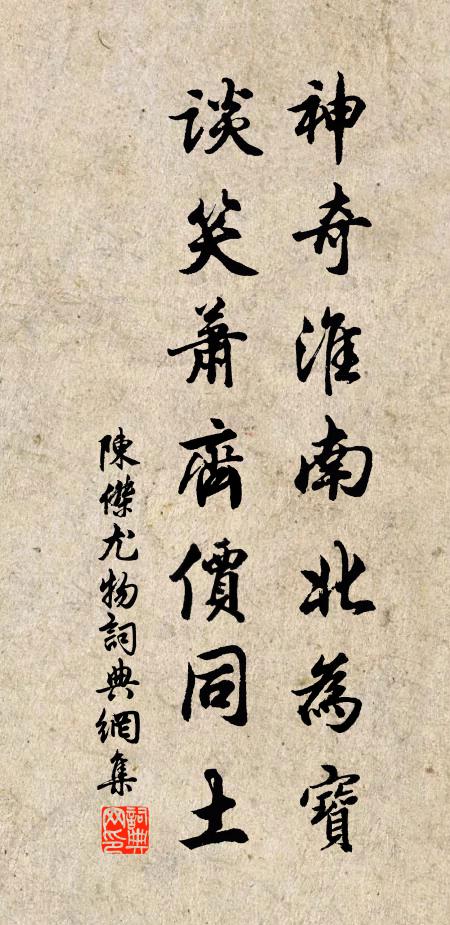 神奇淮南北為寶
談笑蕭齊價同土
陳傑尤物詞典網集
詞典网印